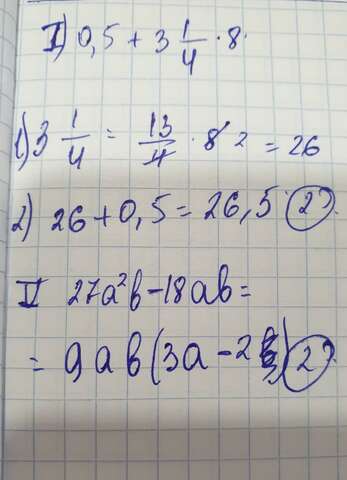 I) 0,5 + 3 1/4 · 8.
1) 3 1/4 = 13/4 · 8 2 = 26
2) 26 + 0,5 = 26,5 2).
II 27a²b - 18ab =
= 9ab(3a - 2) 2).